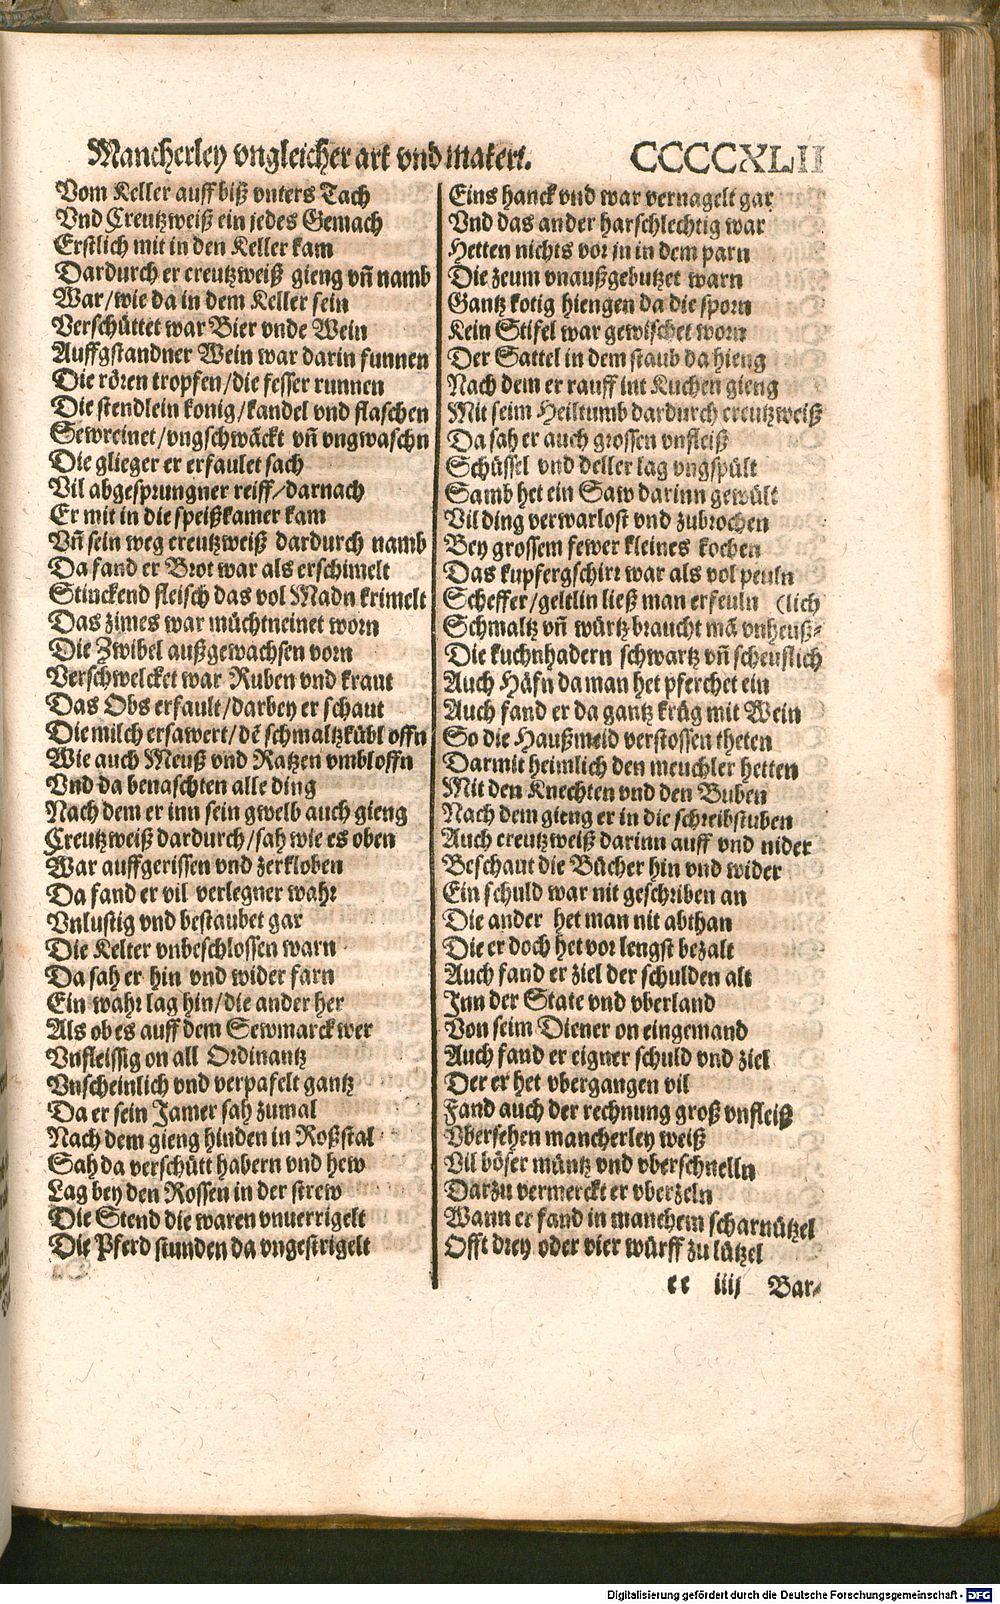 Mancherley vngleicher art vnd materi. CCCCXLII
Vom Keller auff biß vnters Tach
Vnd Creutzweiß ein jedes Gemach
Erstlich mit in den Keller kam
Dardurch er creutzweiß gieng vñ namb
War/wie da in dem Keller sein
Verschüttet war Bier vnde Wein
Auffgstandner Wein war darin funnen
Die rören tropfen/die fesser runnen
Die stendlein konig/kandel vnd flaschen
Sewreinet/vngschwäckt vñ vngwaschn
Die glieger er erfaulet sach
Vil abgesprungner reiff/darnach
Er mit in die speißkamer kam
Vñ sein weg creutzweiß dardurch namb
Da fand er Brot war als erschimelt
Stinckend fleisch das vol Madn krimelt
Das zimes war müchtneinet worn
Die Zwibel außgewachsen vorn
Verschwelcket war Ruben vnd kraut
Das Obs erfault/darbey er schaut
Die milch ersawert/dē schmaltzkübl offn
Wie auch Meuß vnd Ratzen vmbloffn
Vnd da benaschten alle ding
Nach dem er inn sein gwelb auch gieng
Creutzweiß dardurch/sah wie es oben
War auffgerissen vnd zerkloben
Da fand er vil verlegner wahr
Vnlustig vnd bestaubet gar
Die Kelter vnbeschlossen warn
Da sah er hin vnd wider farn
Ein wahr lag hin/die ander her
Als ob es auff dem Sewmarck wer
Vnfleissig on all Ordinantz
Vnscheinlich vnd verpafelt gantz
Da er sein Jamer sah zumal
Nach dem gieng hinden in Roßstal
Sah da verschütt habern vnd hew
Lag bey den Rossen in der strew
Die Stend die waren vnuerrigelt
Die Pferd stunden da vngestrigelt
Eins hanck vnd war vernagelt gar
Vnd das ander harschlechtig war
Hetten nichts vor jn in dem parn
Die zeum vnaußgebutzet warn
Gantz kotig hiengen da die sporn
Kein Stifel war gewischet worn
Der Sattel in dem staub da hieng
Nach dem er rauff int Kuchen gieng
Mit seim Heiltumb dardurch creutzweiß
Da sah er auch grossen vnfleiß
Schüssel vnd deller lag vngspült
Samb het ein Saw darinn gewült
Vil ding verwarlost vnd zubrochen
Bey grossem fewer kleines kochen
Das kupfergschirr war als vol peuln
Scheffer/geltlin ließ man erfeuln (lich
Schmaltz vñ würtz braucht mā vnheuß-
Die kuchnhadern schwartz vñ scheuslich
Auch Häfn da man het pferchet ein
Auch fand er da gantz krüg mit Wein
So die Haußmeid verstossen theten
Darmit heimlich den meuchler hetten
Mit den Knechten vnd den Buben
Nach dem gieng er in die schreibstuben
Auch creutzweiß darinn auff vnd nider
Beschaut die Bücher hin vnd wider
Ein schuld war nit geschriben an
Die ander het man nit abthan
Die er doch het vor lengst bezalt
Auch fand er ziel der schulden alt
Jnn der State vnd vberland
Von seim Diener on eingemand
Auch fand er eigner schuld vnd ziel
Der er het vbergangen vil
Fand auch der rechnung groß vnfleiß
Vbersehen mancherley weiß
Vil böser müntz vnd vberschnelln
Darzu vermerckt er vberzeln
Wann er fand in manchem scharnützel
Offt drey oder vier würff zu lützel
cc iiij Bar-
Digitalisierung gefördert durch die Deutsche Forschungsgemeinschaft - DFG